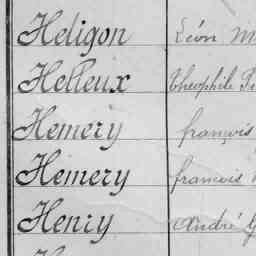 Heligon Léon
Helleux Théophile
Hemery françois
Hemery francois
Henry André